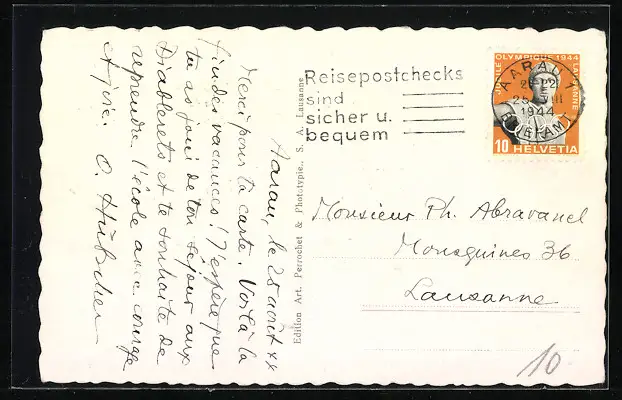 Aarau, le 25 août 44
Merci pour ta carte. Voilà la
fin des vacances! J'espère que
tu as joui de ton séjour aux
Diablerets et te souhaite de
reprendre l'école avec courage
O. Hubscher
Edition Art. Perrochet & Phototypie., S. A. Lausanne
Reisepostchecks
sind
sicher u.
bequem
JUBILÉ OLYMPIQUE 1944 LAUSANNE
10 HELVETIA
AARAU 1
25. VIII
1944
BRIEFAMT
Monsieur Ph. Abravanel
Mousquines 36
Lausanne
10